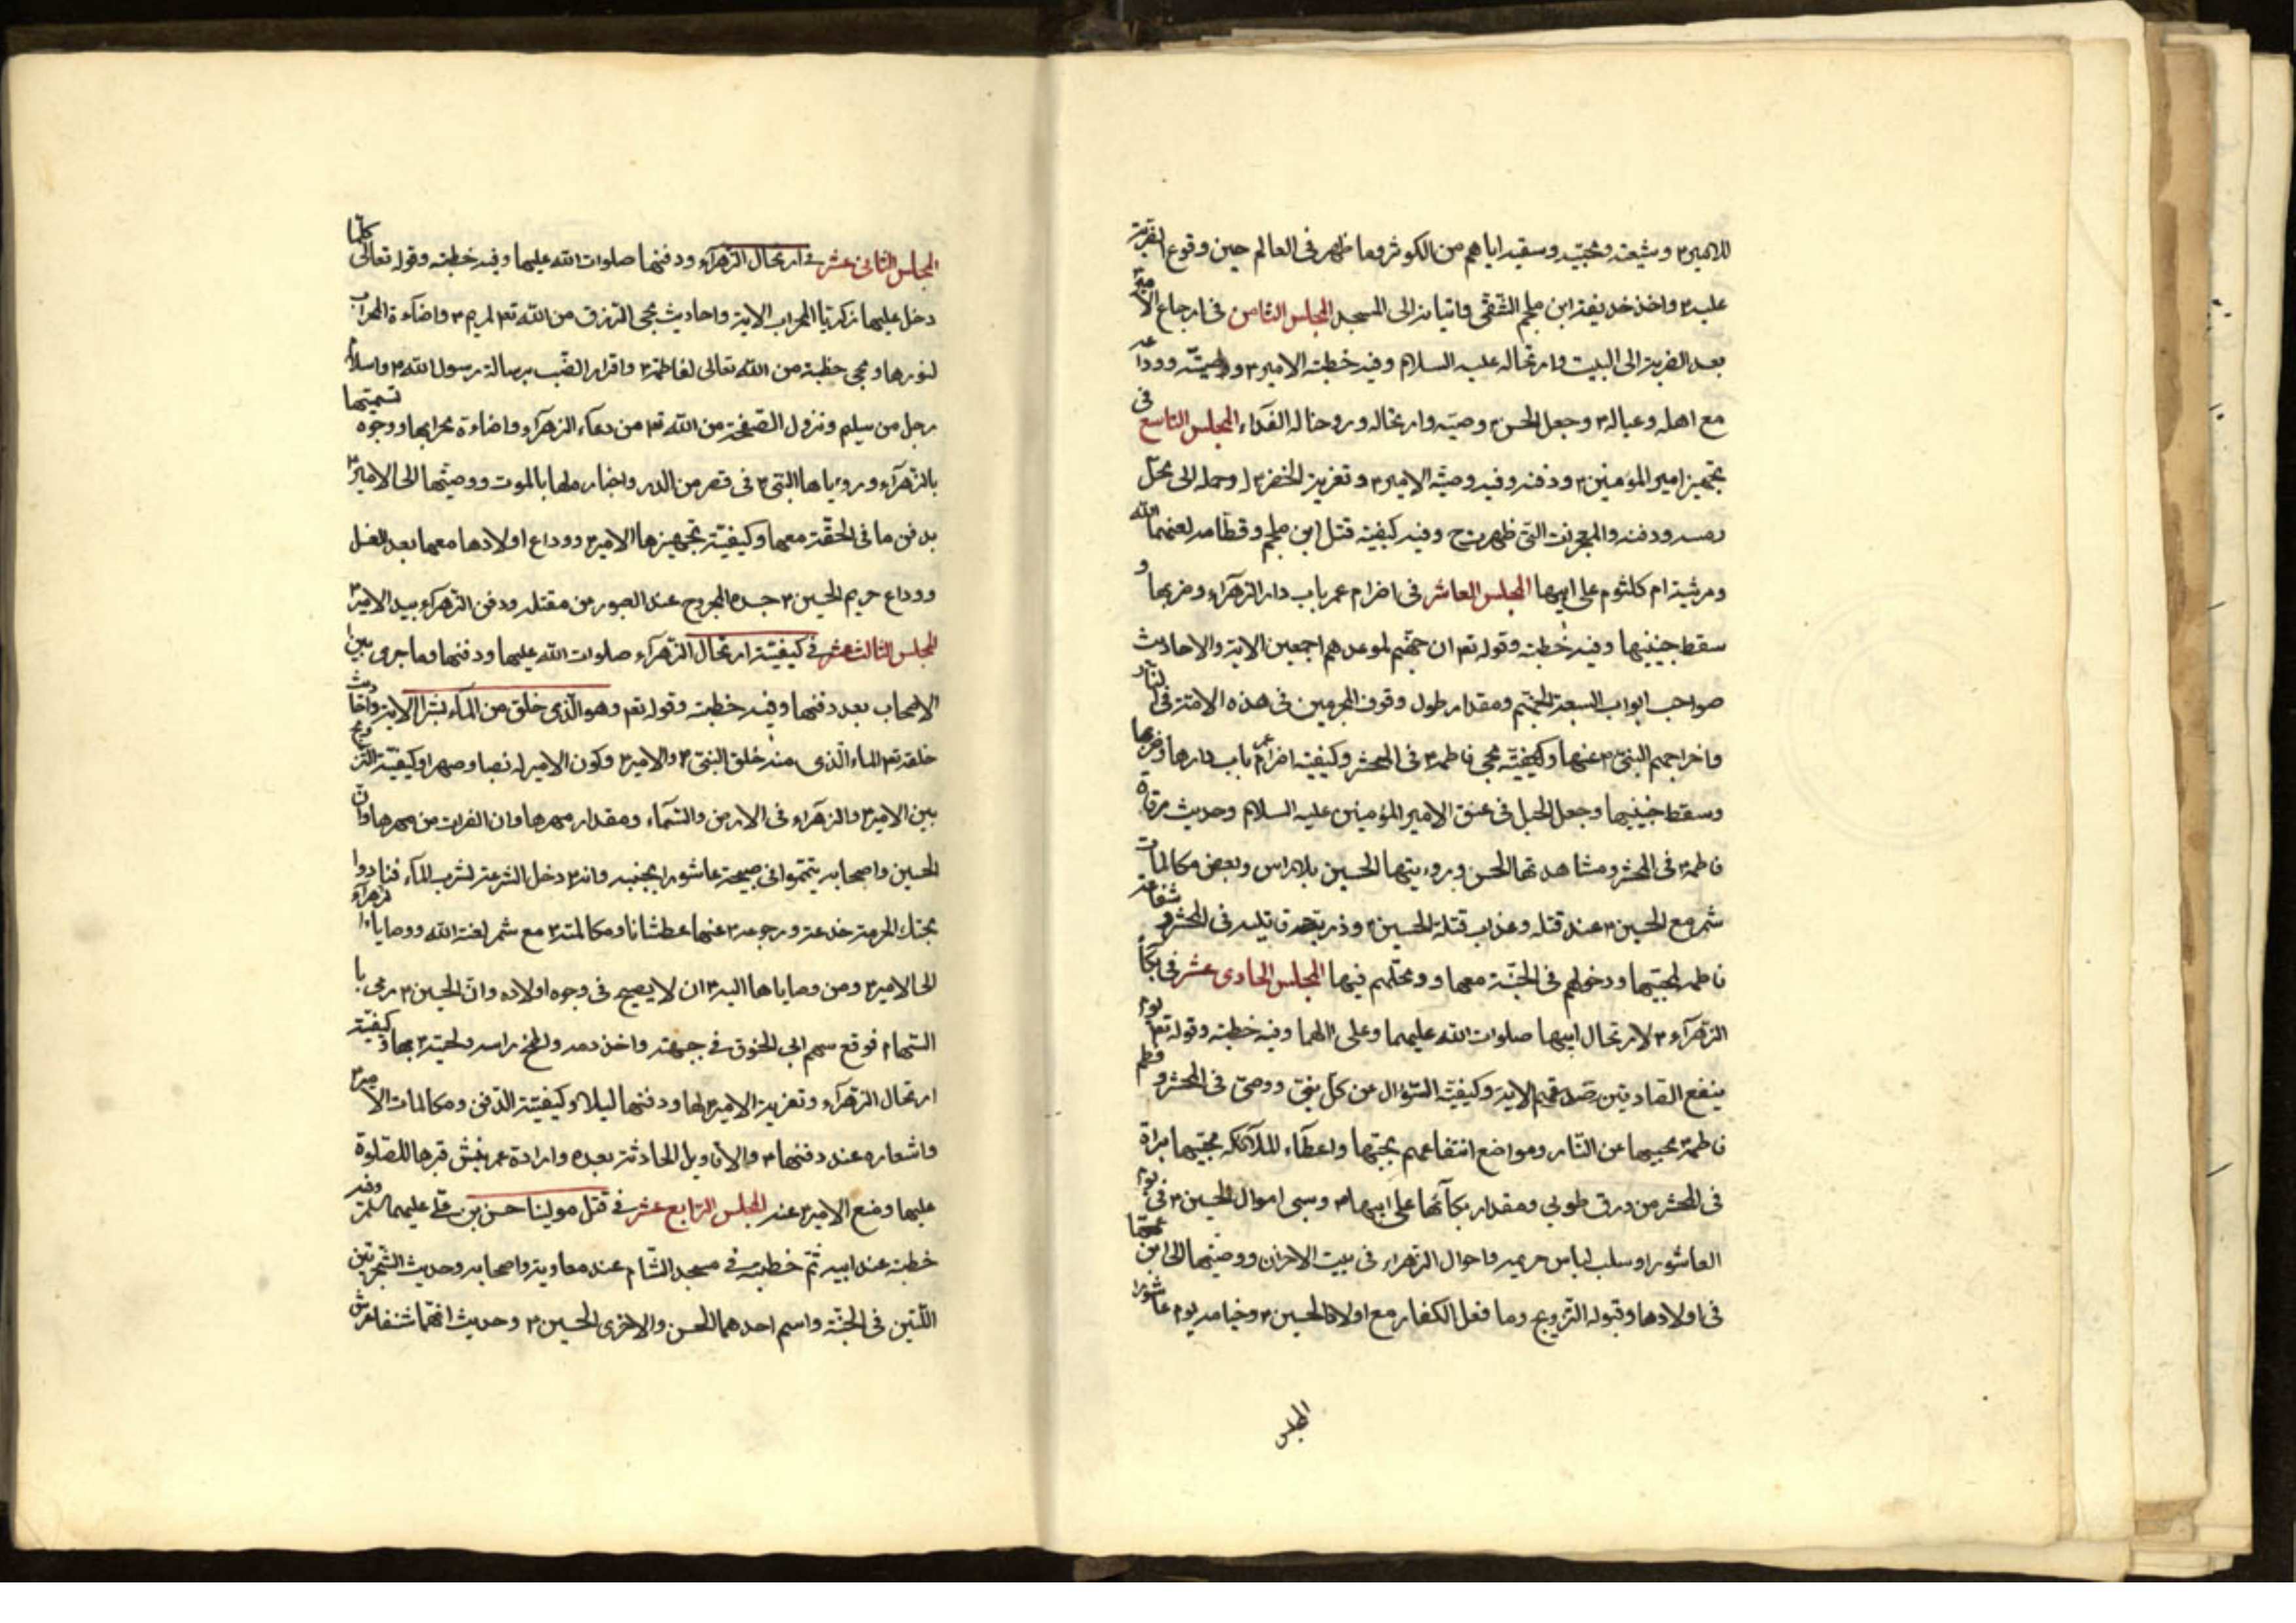 للامير٢ وشيعته ومحبيه وسقيه اياهم من الكوثر وما ظهر فى العالم حين وقوع الضربة
عليه٢ واخذ حذيفة ابن ملجم الشقى واتيانه الى المسجد المجلس الثامن فى ارجاع الامير٢
بعد الضربة الى البيت وارتحاله عليه السلام وفيه خطبة الامير٢ ووصيته ووداعه
مع اهله وعياله٢ وجعل الحسن٢ وصيه وارتحاله وروحنا له الفداء المجلس التاسع فى
تجهيز امير المؤمنين٢ ودفنه وفيه وصية الامير٢ وتعزية الخضر٢ له وحمله الى محل
رمسه ودفنه والمعجزات التى ظهرت ح وفيه كيفية قتل ابن ملجم وقطامه لعنهما الله
ومرثية ام كلثوم على ابيها المجلس العاشر فى اضرام عمر باب دار الزهرآء وضربها و
سقط جنينها وفيه خطبة وقوله تعم ان جهنم لموعدهم اجمعين الاية والاحاديث
صواحب ابواب السبعة لجهنم ومقدار طول وقوف المجرمين فى هذه الامة فى النار
واخراجهم النبى٢ عنها وكيفية مجى فاطمة٢ فى المحشر وكيفية اضرام عمر باب دارها وضربها
وسقط جنينها وجعل الحبل فى عنق الامير المؤمنين عليه السلام وحديث مرقاة
فاطمة٢ فى المحشر ومشاهدتها الحسن ورويتها الحسين بلا راس وبعض مكالمات
شمر مع الحسين٢ عند قتله وعذاب قتلة الحسين٢ وذرية قاتليه فى المحشر وشفاعة
فاطمه لمحبيها ودخولهم فى الجنة معها ومحلهم فيها المجلس الحادى عشر فى بكآء
الزهرآء٢ لارتحال ابيها صلوات الله عليهما وعلى الهما وفيه خطبة وقوله تعم يوم
ينفع الصادقين صدقهم الاية وكيفية السؤال عن كل نبى ووصى فى المحشر وفطم
فاطمة٢ محبيها عن النار ومواضع انتفاعهم بحبها واعطاء الملآئكة محبيها براة
فى المحشر من ورق طوبى ومقدار بكآئها على ابيها٢ وسبى اموال الحسين٢ فى يوم
العاشورا وسلب لباس حريمه واحوال الزهراء فى بيت الاحزان ووصيتها الى ابن عمها
فى اولادها وقبوله التزويج وما فعل الكفار مع اولاد الحسين٢ وخيامه يوم عاشورا
المجلس
المجلس الثانى عشر فى ارتحال الزهرآء ودفنها صلوات الله عليها وفيه خطبة وقوله تعالى كلما
دخل عليها زكريا المحراب الاية واحاديث مجى الرزق من الله تعم لمريم٢ واضآءة المحراب
لنورها ومجى خطبة من الله تعالى لفاطمة٢ واقرار الضب برسالة رسول الله٢ واسلام
رجل من سليم ونزول الصفحة من الله تعم من دعآء الزهرآء واضاءة محرابها ووجوه تسميتها
بالزهرآء ورؤياها النبى٢ فى قصر من الدر واخباره لها بالموت ووصيتها الى الامير٢
بدفن ما فى الحقة معها وكيفية تجهيزها الامير٢ ووداع اولادها معها بعد الغسل
ووداع حريم الحسين٢ جسده المجروح عند العبور من مقتله ودفن الزهرآء بيد الامير٢
المجلس الثالث عشر فى كيفية ارتحال الزهرآء صلوات الله عليها ودفنها وما جرى بين
الاصحاب بعد دفنها وفيه خطبة وقوله تعم وهو الذى خلق من المآء بشرا الاية واحاديث
خلقة تعم الماء الذى منه خلق النبى٢ والامير٢ وكون الامير له نسبا وصهرا وكيفية التزويج
بين الامير٢ والزهرآء فى الارض والسمآء ومقدار مهرها وان الفرات من مهرها وان
الحسين واصحابه يتمموا فى صبيحة عاشورا بجنبه وانه٢ دخل الشرعة لشرب المآء فنادوا
بهتك الحرمة خدعة ورجوعه٢ عنها عطشانا ومكالمته٢ مع شمر لعنة الله ووصايا الزهرآء
الى الامير٢ ومن وصاياها اليه٢ ان لا يصيح فى وجوه اولاده وان الحسين٢ رمى با
السهام فوقع سهم ابى الحنوق فى جبهته واخذ دمه ولطخ راسه ولحيته٢ بها وكيفية
ارتحال الزهرآء وتعزية الامير٢ لها ودفنها ليلا وكيفية الدفن ومكالمات الامير٢
واشعاره عند دفنها٢ والاقاويل الحادثة بعده وارادة عمر نبش قبرها للصلوة
عليها ومنع الامير٢ عنه المجلس الرابع عشر فى قتل مولينا حسن بن على عليهما السلم وفيه
خطبة عند ابيه ثم خطبته فى مسجد الشام عند معاوية واصحابه وحديث الشجرتين
اللتين فى الجنة واسم احدهما الحسن والاخرى الحسين٢ وحديث انهما شنفا عرش